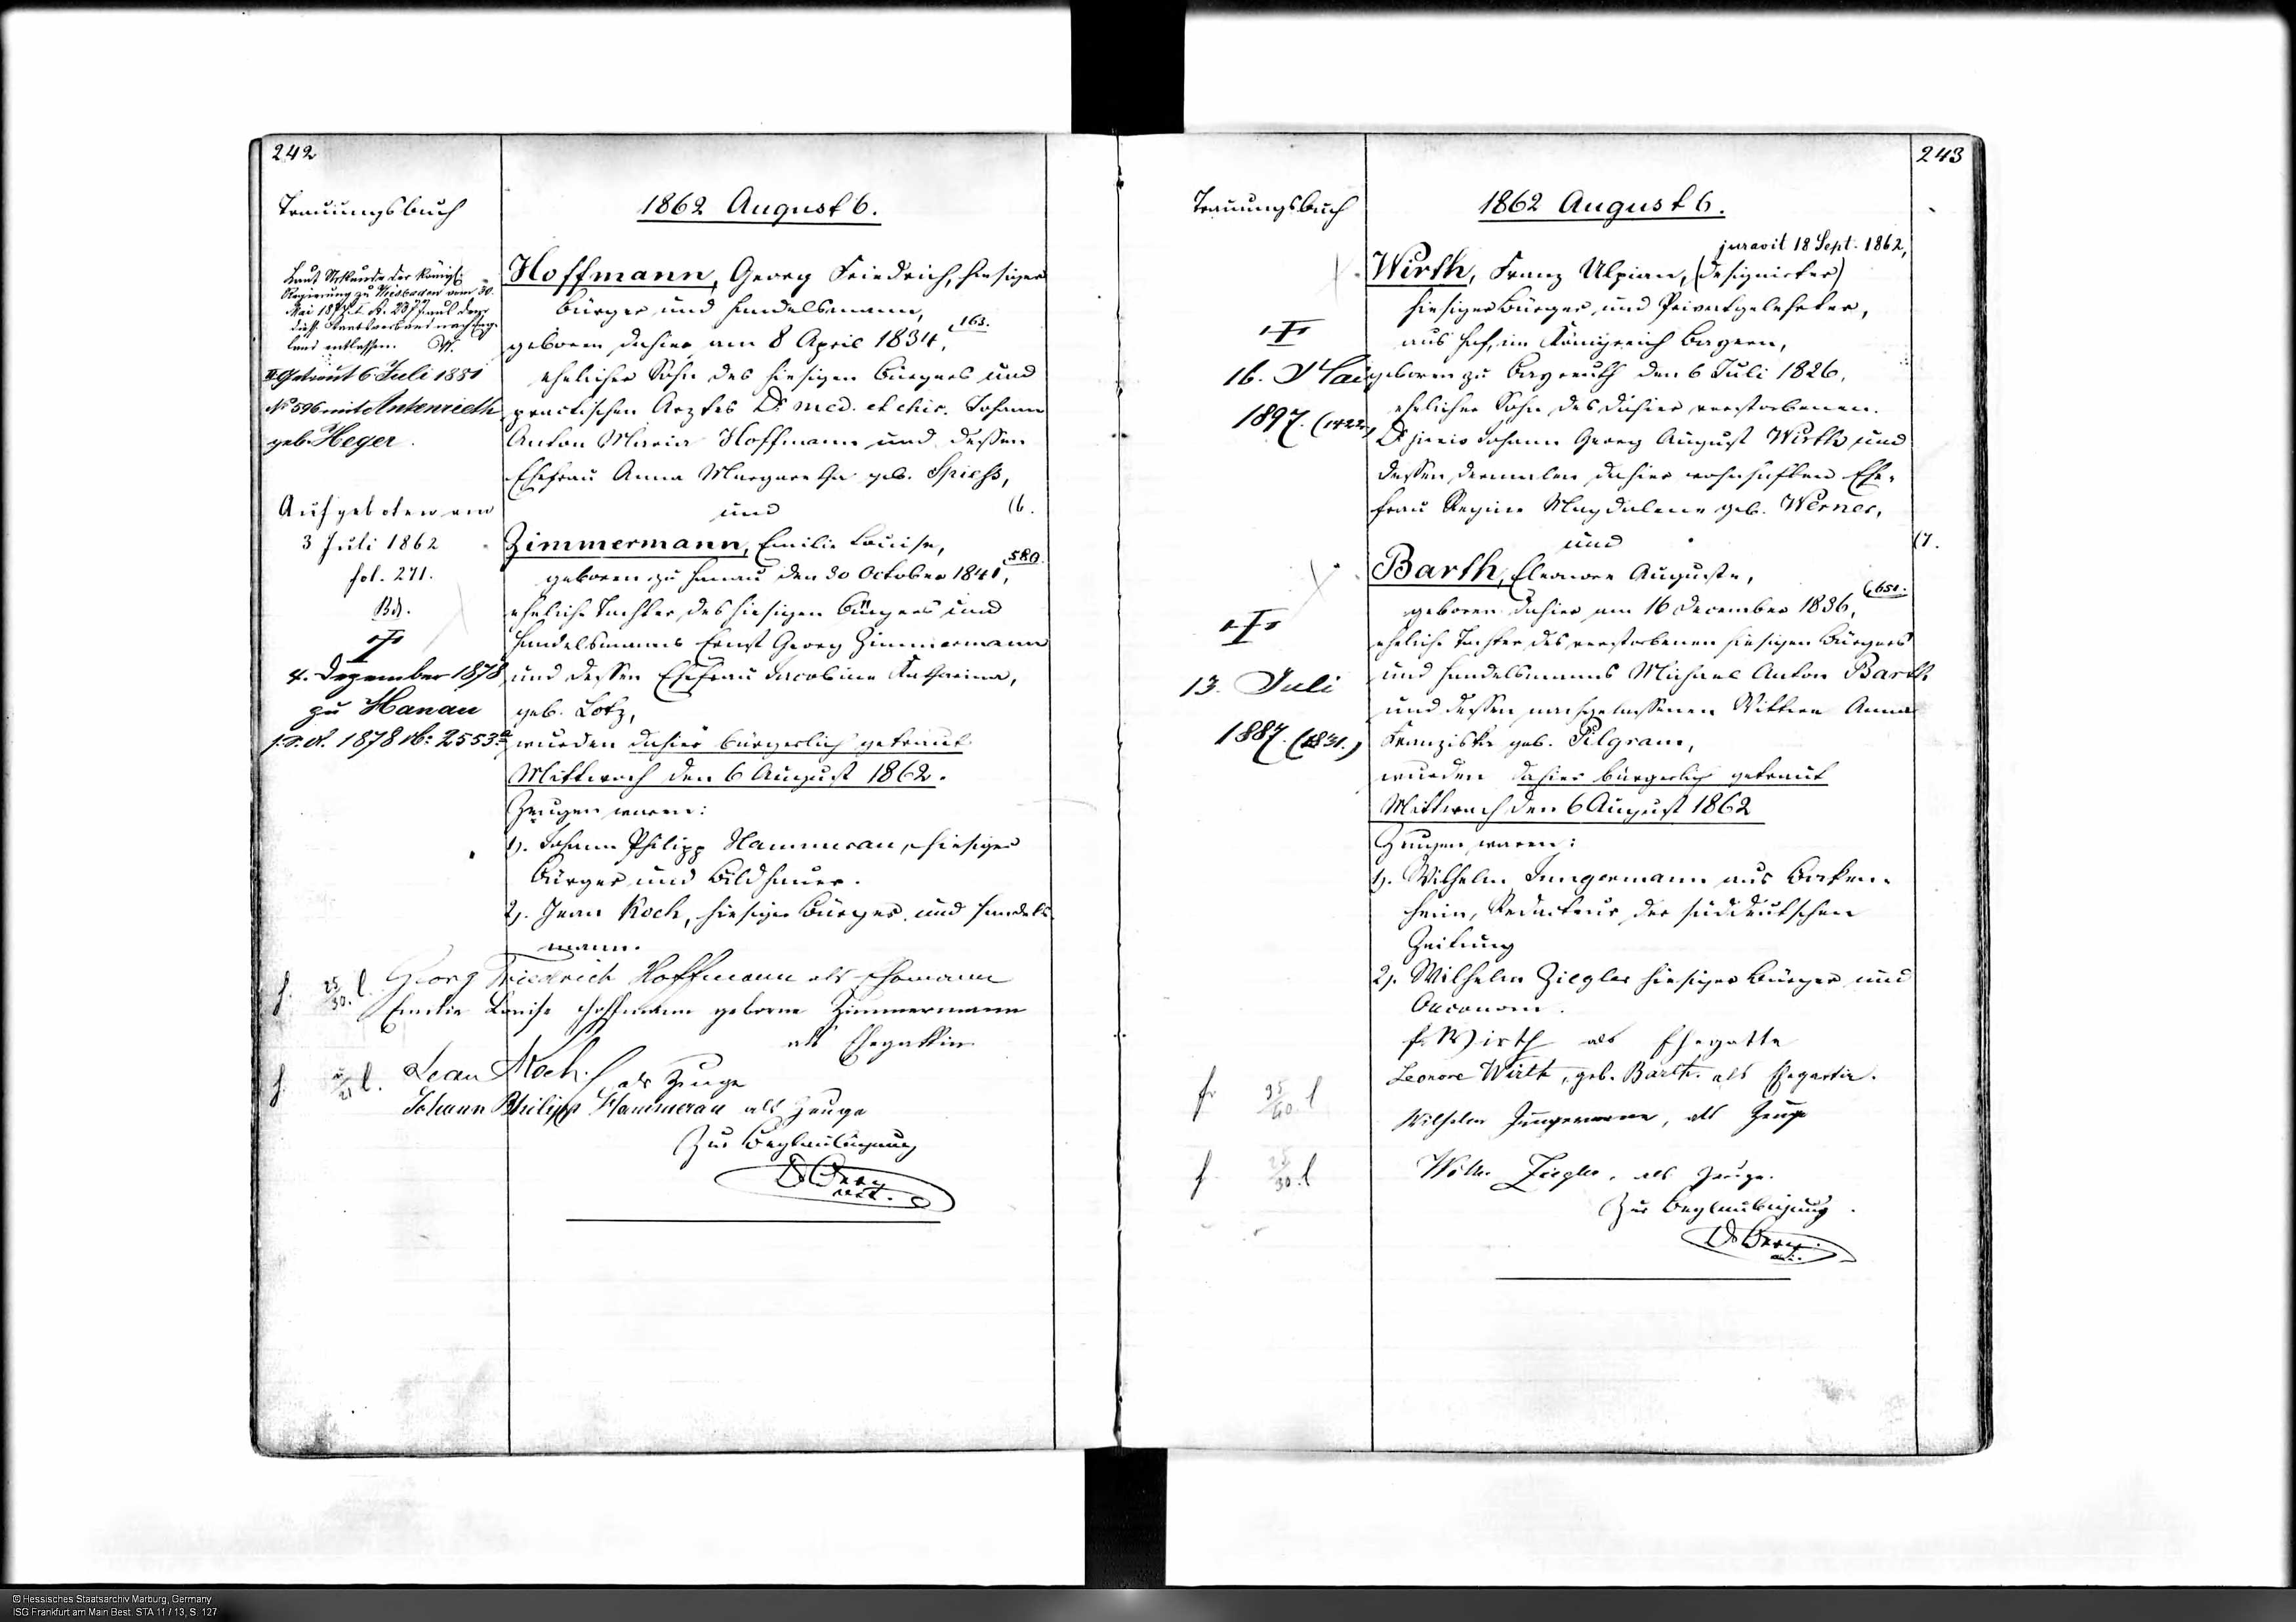 242
Trauungsbuch
1862 August 6.
Laut Urkunde der Königl.
Regierung zu Wiesbaden vom 30.
Mai 1877
land entlassen.
II Getraut 6 Juli 1881
No 596 mit Antenrieth
geb. Heger.
Aufgeboten am
3 Juli 1862
fol. 271.
4. Dezember 1878
zu Hanau
1878 No. 2553.
Hoffmann, Georg Friedrich, hiesiger
Bürger und Handelsmann,
geboren dahier am 8 April 1834, 163.
ehelicher Sohn des hiesigen Bürgers und
practischen Arztes Dr. med. et chir. Johann
Anton Maria Hoffmann und dessen
Ehefrau Anna Margaretha geb. Spiess,
und (6.
Zimmermann, Emilie Louise,
geboren zu Hanau den 30 October 1841, 580.
eheliche Tochter des hiesigen Bürgers und
Handelsmanns Ernst Georg Zimmermann
und dessen Ehefrau Jacobine Katharina,
geb. Lotz,
wurden dahier bürgerlich getraut
Mittwoch den 6 August 1862.
Zeugen waren:
1). Johann Philipp Hammeran, hiesiger
Bürger und Bildhauer.
2). Jean Koch, hiesiger Bürger und Handels
mann.
Georg Friedrich Hoffmann als Ehemann
Emilie Louise Hoffmann geborne Zimmermann
als Ehegattin
Jean Koch. als Zeuge
Johann Philipp Hammeran als Zeuge
Zur Beglaubigung
243
Trauungsbuch
1862 August 6.
juravit 18 Sept. 1862,
Wirth, Franz Ulpian, (designirter)
hiesiger Bürger und Privatgelehrter,
aus Hof, im Königreich Bayern,
geboren zu Bayreuth den 6 Juli 1826,
ehelicher Sohn des dahier verstorbenen
Dr juris Johann Georg August Wirth und
dessen dermalen dahier wohnhaften Ehe-
frau Regine Magdalene geb. Werner,
und (7.
Barth, Eleonore Auguste,
geboren dahier am 16 December 1836, 651.
eheliche Tochter des verstorbenen hiesigen Bürgers
und Handelsmanns Michael Anton Barth
und dessen nachgelassenen Wittwe Anna
Franziska geb. Pilgram,
wurden dahier bürgerlich getraut
Mittwoch den 6 August 1862
Zeugen waren:
1). Wilhelm Jungermann aus Bocken-
heim, Redacteur der süddeutschen
Zeitung
2). Wilhelm Ziegler hiesiger Bürger und
Oeconom.
16. Mai
1897. (1422.)
13. Juli
1887. (1831.)
fr Wirth als Ehegatte
Leonore Wirth, geb. Barth. als Ehegattin.
Wilhelm Jungermann, als Zeuge
Wilh. Ziegler, als Zeuge.
Zur Beglaubigung
© Hessisches Staatsarchiv Marburg, Germany
ISG Frankfurt am Main Best. STA 11 / 13, S. 127